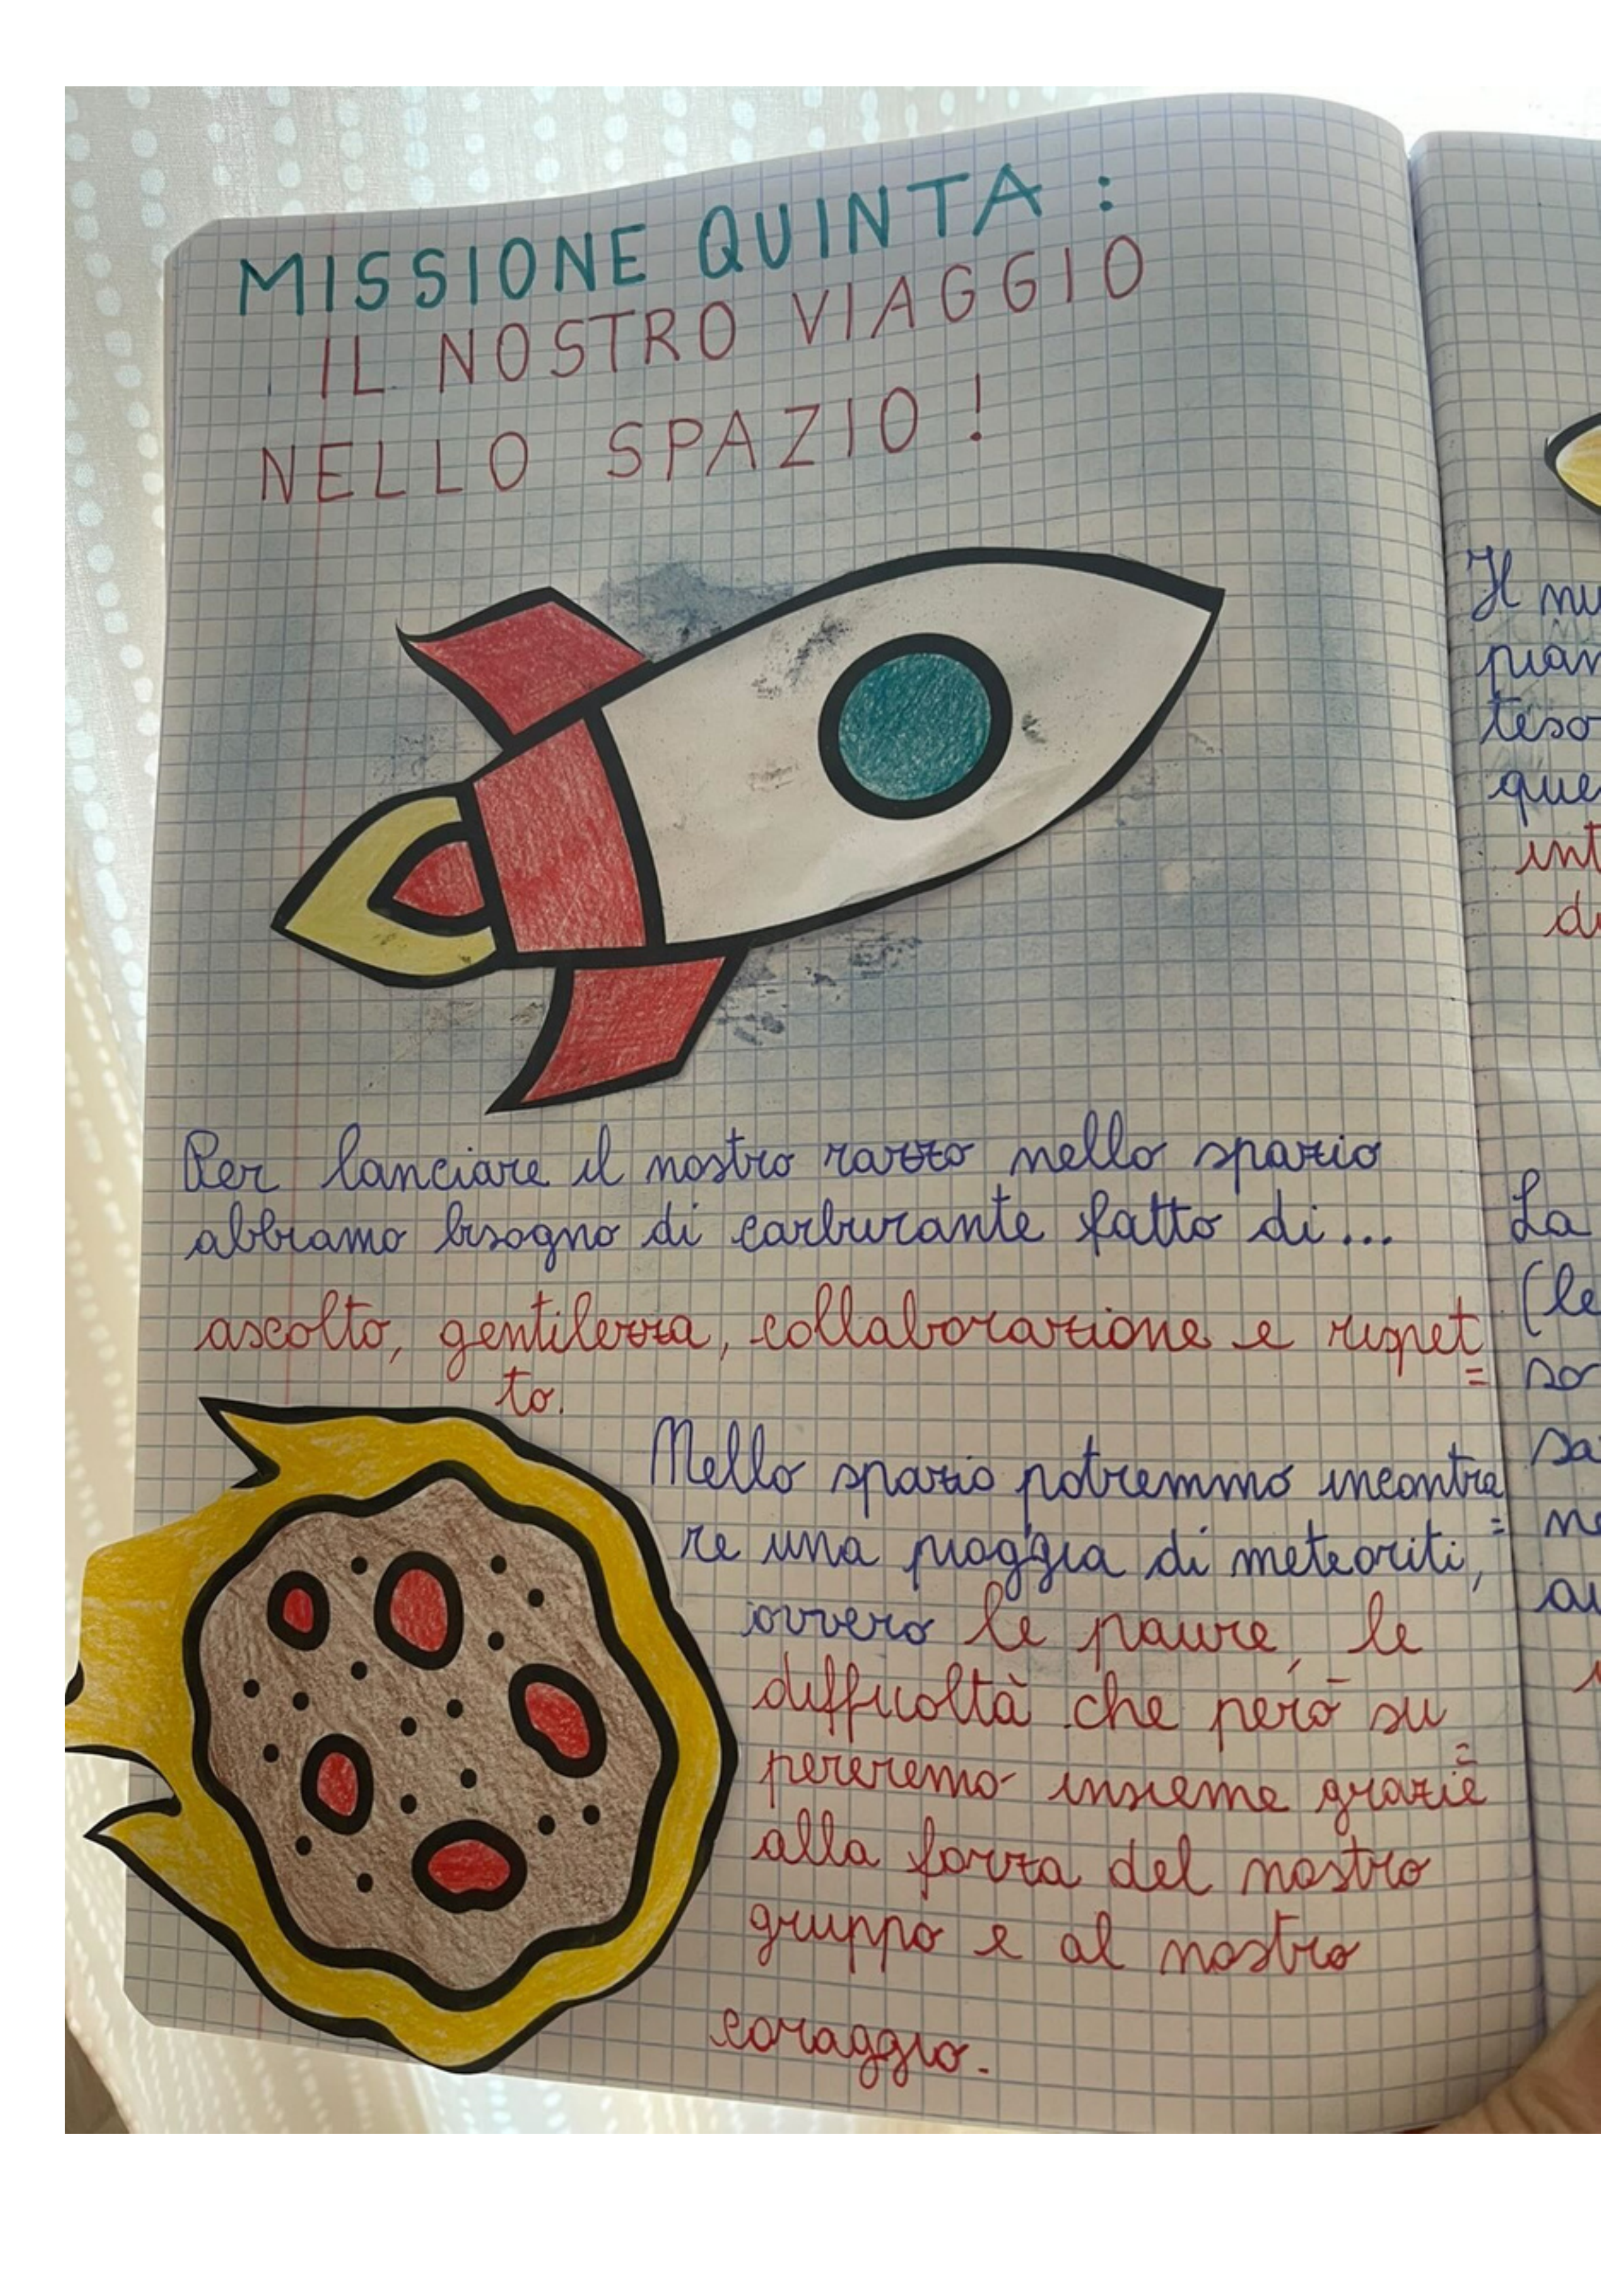 MISSIONE QUINTA :
IL NOSTRO VIAGGIO
NELLO SPAZIO !
Per lanciare il nostro razzo nello spazio
abbiamo bisogno di carburante fatto di...
ascolto, gentilezza, collaborazione e rispet=
to.
Nello spazio potremmo incontra=
re una pioggia di meteoriti,
ovvero le paure, le
difficoltà che però su=
pereremo insieme grazie
alla forza del nostro
gruppo e al nostro
coraggio.
Il
La
(le